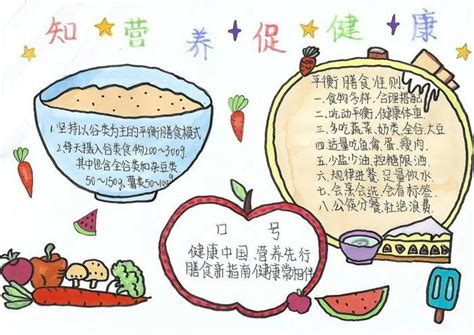 知营养促健康
1.坚持以谷类为主的平衡膳食模式
2.每天摄入谷类食物200~300g.
其中包含全谷类和杂豆类
50~150g,薯类50~100g
平衡膳食准则
一、食物多样,合理搭配
二、吃动平衡,健康体重
三、多吃蔬菜、奶类、全谷、大豆
四、适量吃鱼禽、蛋、瘦肉、
五、少盐少油,控糖限酒
六、规律进餐,足量饮水
七、会烹会选,会看标签、
八、公筷分餐,杜绝浪费.
口号
健康中国,营养先行
膳食新指南健康常相伴